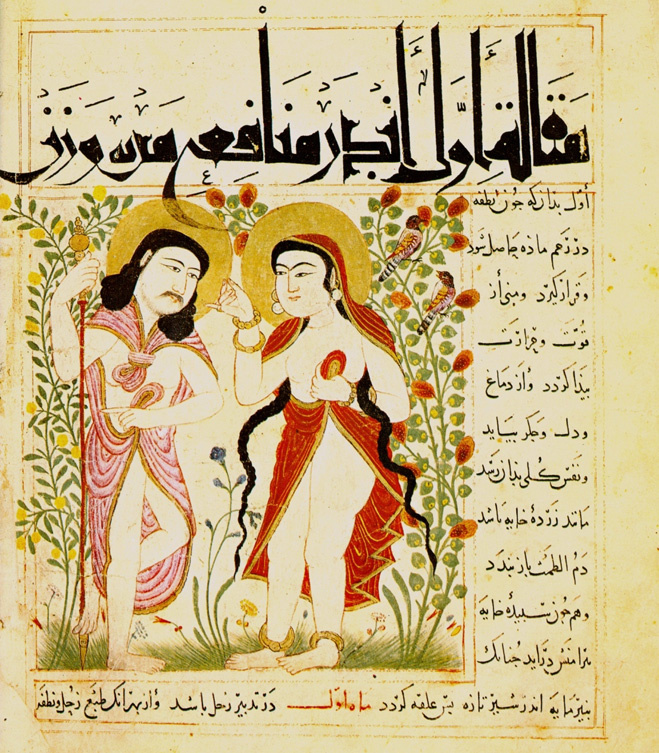 مقالة اول أندر منافع مردم وزن
اوّل بدان که چون نطفه
در زهم ماده حاصل شود
وقرار کیرد ومنی أز
قوّت وحرارت
بیدا کردد وأز دماغ
ودل وجکر بیاید
ونفس کلی بدان رسد
مانند زردهٔ خایه باشد
دم الطمث باز بندد
وهم جون سبیدهٔ خایه
جنانک
بنیر مایه اندر شیر تازه بس علقه کردد ماه اوّل در تدبیر زحل باشد وأز بهر انک طبع زحل ونطفه